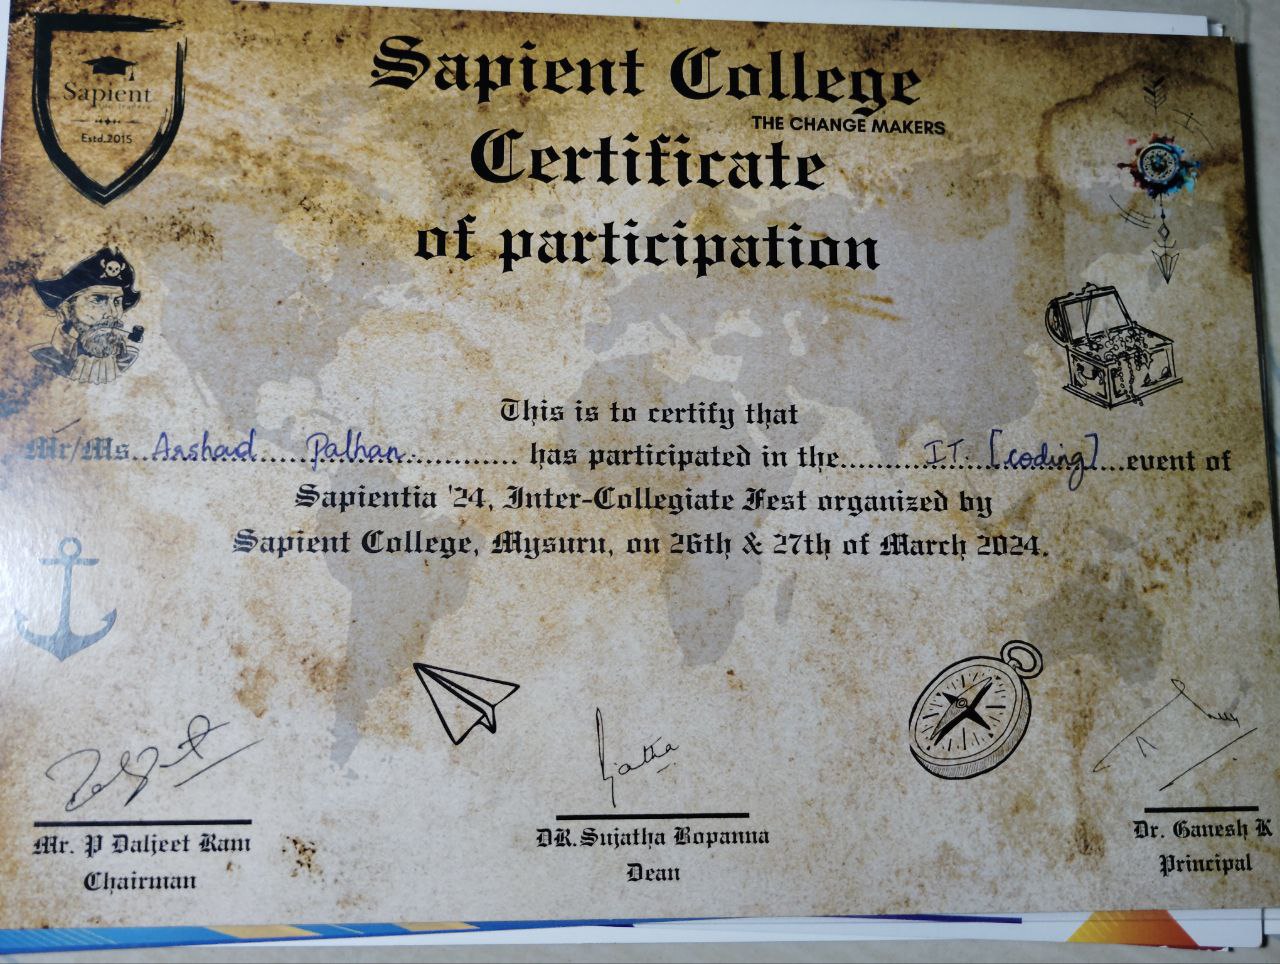 Sapient
Estd.2015
Sapient College
THE CHANGE MAKERS
Certificate
of participation
This is to certify that
Mr/Ms. Arshad Palhan has participated in the IT [coding] event of
Sapientia '24, Inter-Collegiate Fest organized by
Sapient College, Mysuru, on 26th & 27th of March 2024.
Mr. P Daljeet Ram
Chairman
DR.Sujatha Bopanna
Dean
Dr. Ganesh K
Principal